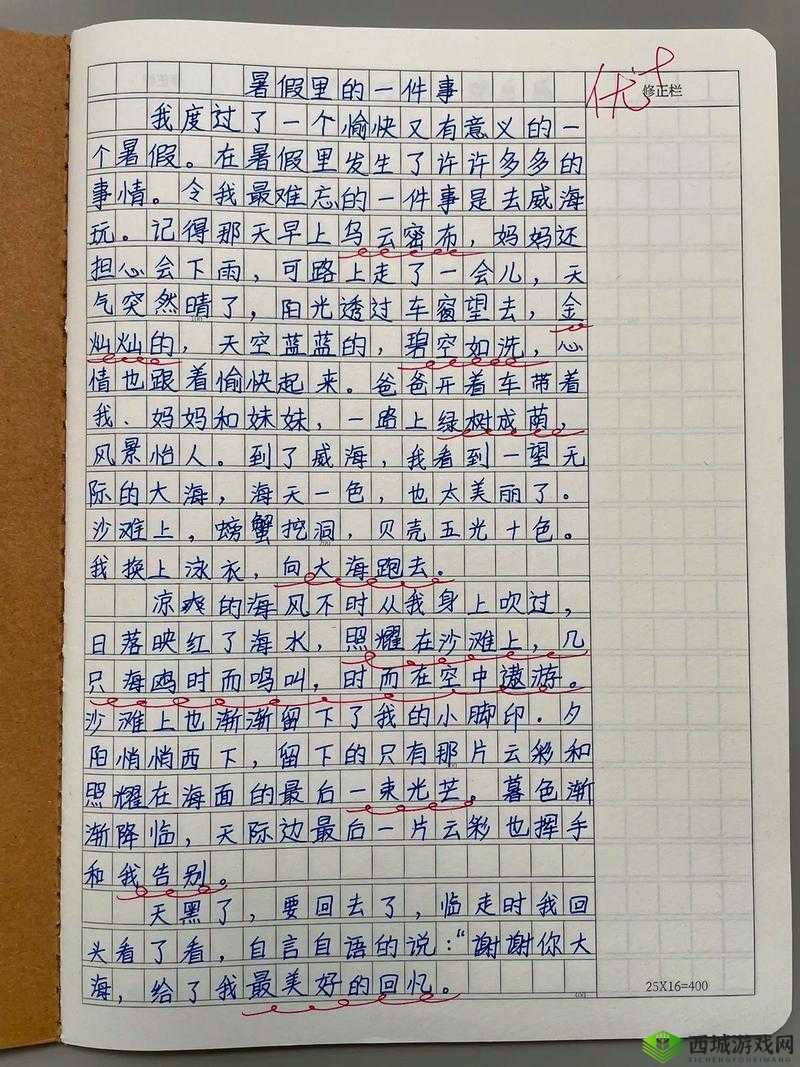 暑假里的一件事
优+
修正栏
我度过了一个愉快又有意义的一
个暑假。在暑假里发生了许许多多的
事情。令我最难忘的一件事是去威海
玩。记得那天早上乌云密布，妈妈还
担心会下雨，可路上走了一会儿，天
气突然晴了，阳光透过车窗望去，金
灿灿的，天空蓝蓝的，碧空如洗，心
情也跟着愉快起来。爸爸开着车带着
我、妈妈和妹妹，一路上绿树成荫，
风景怡人。到了威海，我看到一望无
际的大海，海天一色，也太美丽了。
沙滩上，螃蟹挖洞，贝壳五光十色。
我换上泳衣，向大海跑去。
凉爽的海风不时从我身上吹过，
日落映红了海水，照耀在沙滩上，几
只海鸥时而鸣叫，时而在空中遨游。
沙滩上也渐渐留下了我的小脚印。夕
阳悄悄西下，留下的只有那片云彩和
照耀在海面的最后一束光芒。暮色渐
渐降临，天际边最后一片云彩也挥手
和我告别。
天黑了，要回去了，临走时我回
头看了看，自言自语的说：“谢谢你大
海，给了我最美好的回忆。
25X16=400
西城游戏网
XICHENGYOUXIWANG